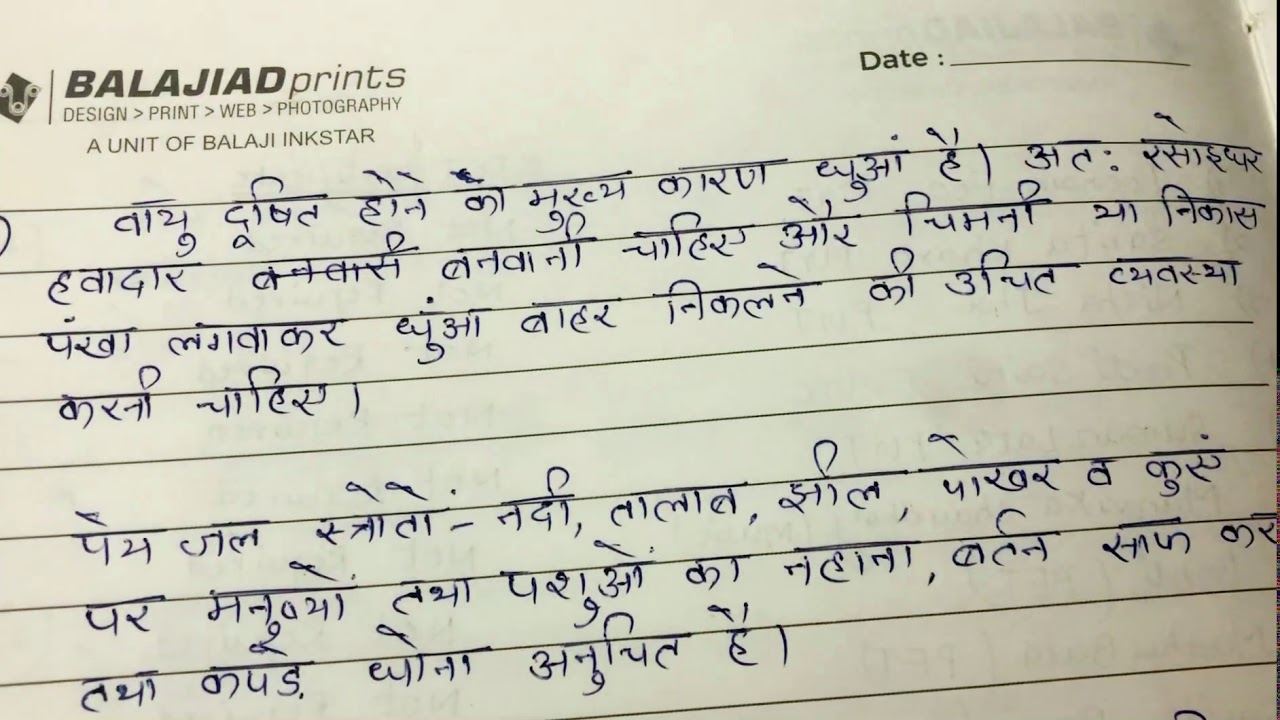 BALAJIADprints
DESIGN > PRINT > WEB > PHOTOGRAPHY
A UNIT OF BALAJI INKSTAR
Date :
वायु दूषित होने का मुख्य कारण धुआं है। अतः रसोइघर
हवादार बनवानी चाहिए और चिमनी या निकास
पंखा लगवाकर धुंआ बाहर निकलने की उचित व्यवस्था
करनी चाहिए।
पेय जल स्त्रोतों - नदी, तालाब, झील, पोखर व कुएं
पर मनुष्यों तथा पशुओं का नहाना, बर्तन साफ कर
तथा कपड़े धोना अनुचित है।